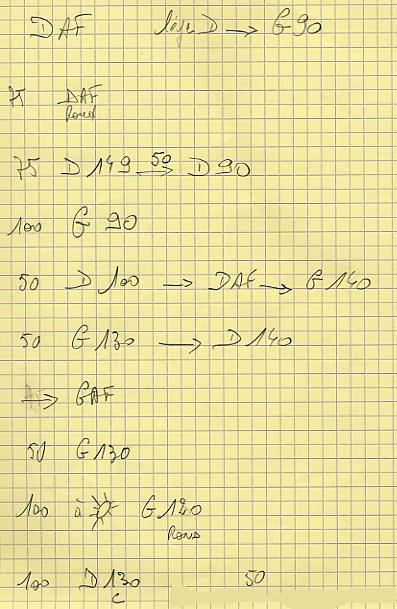 DAF léger D → G 90
75 DAF
Rond
75 D 149 50 → D 90
100 G 90
50 D 100 → DAF → G 140
50 G 130 → D 140
→ GAF
50 G 130
100 à G 120
Rond
100 D 130 50
C